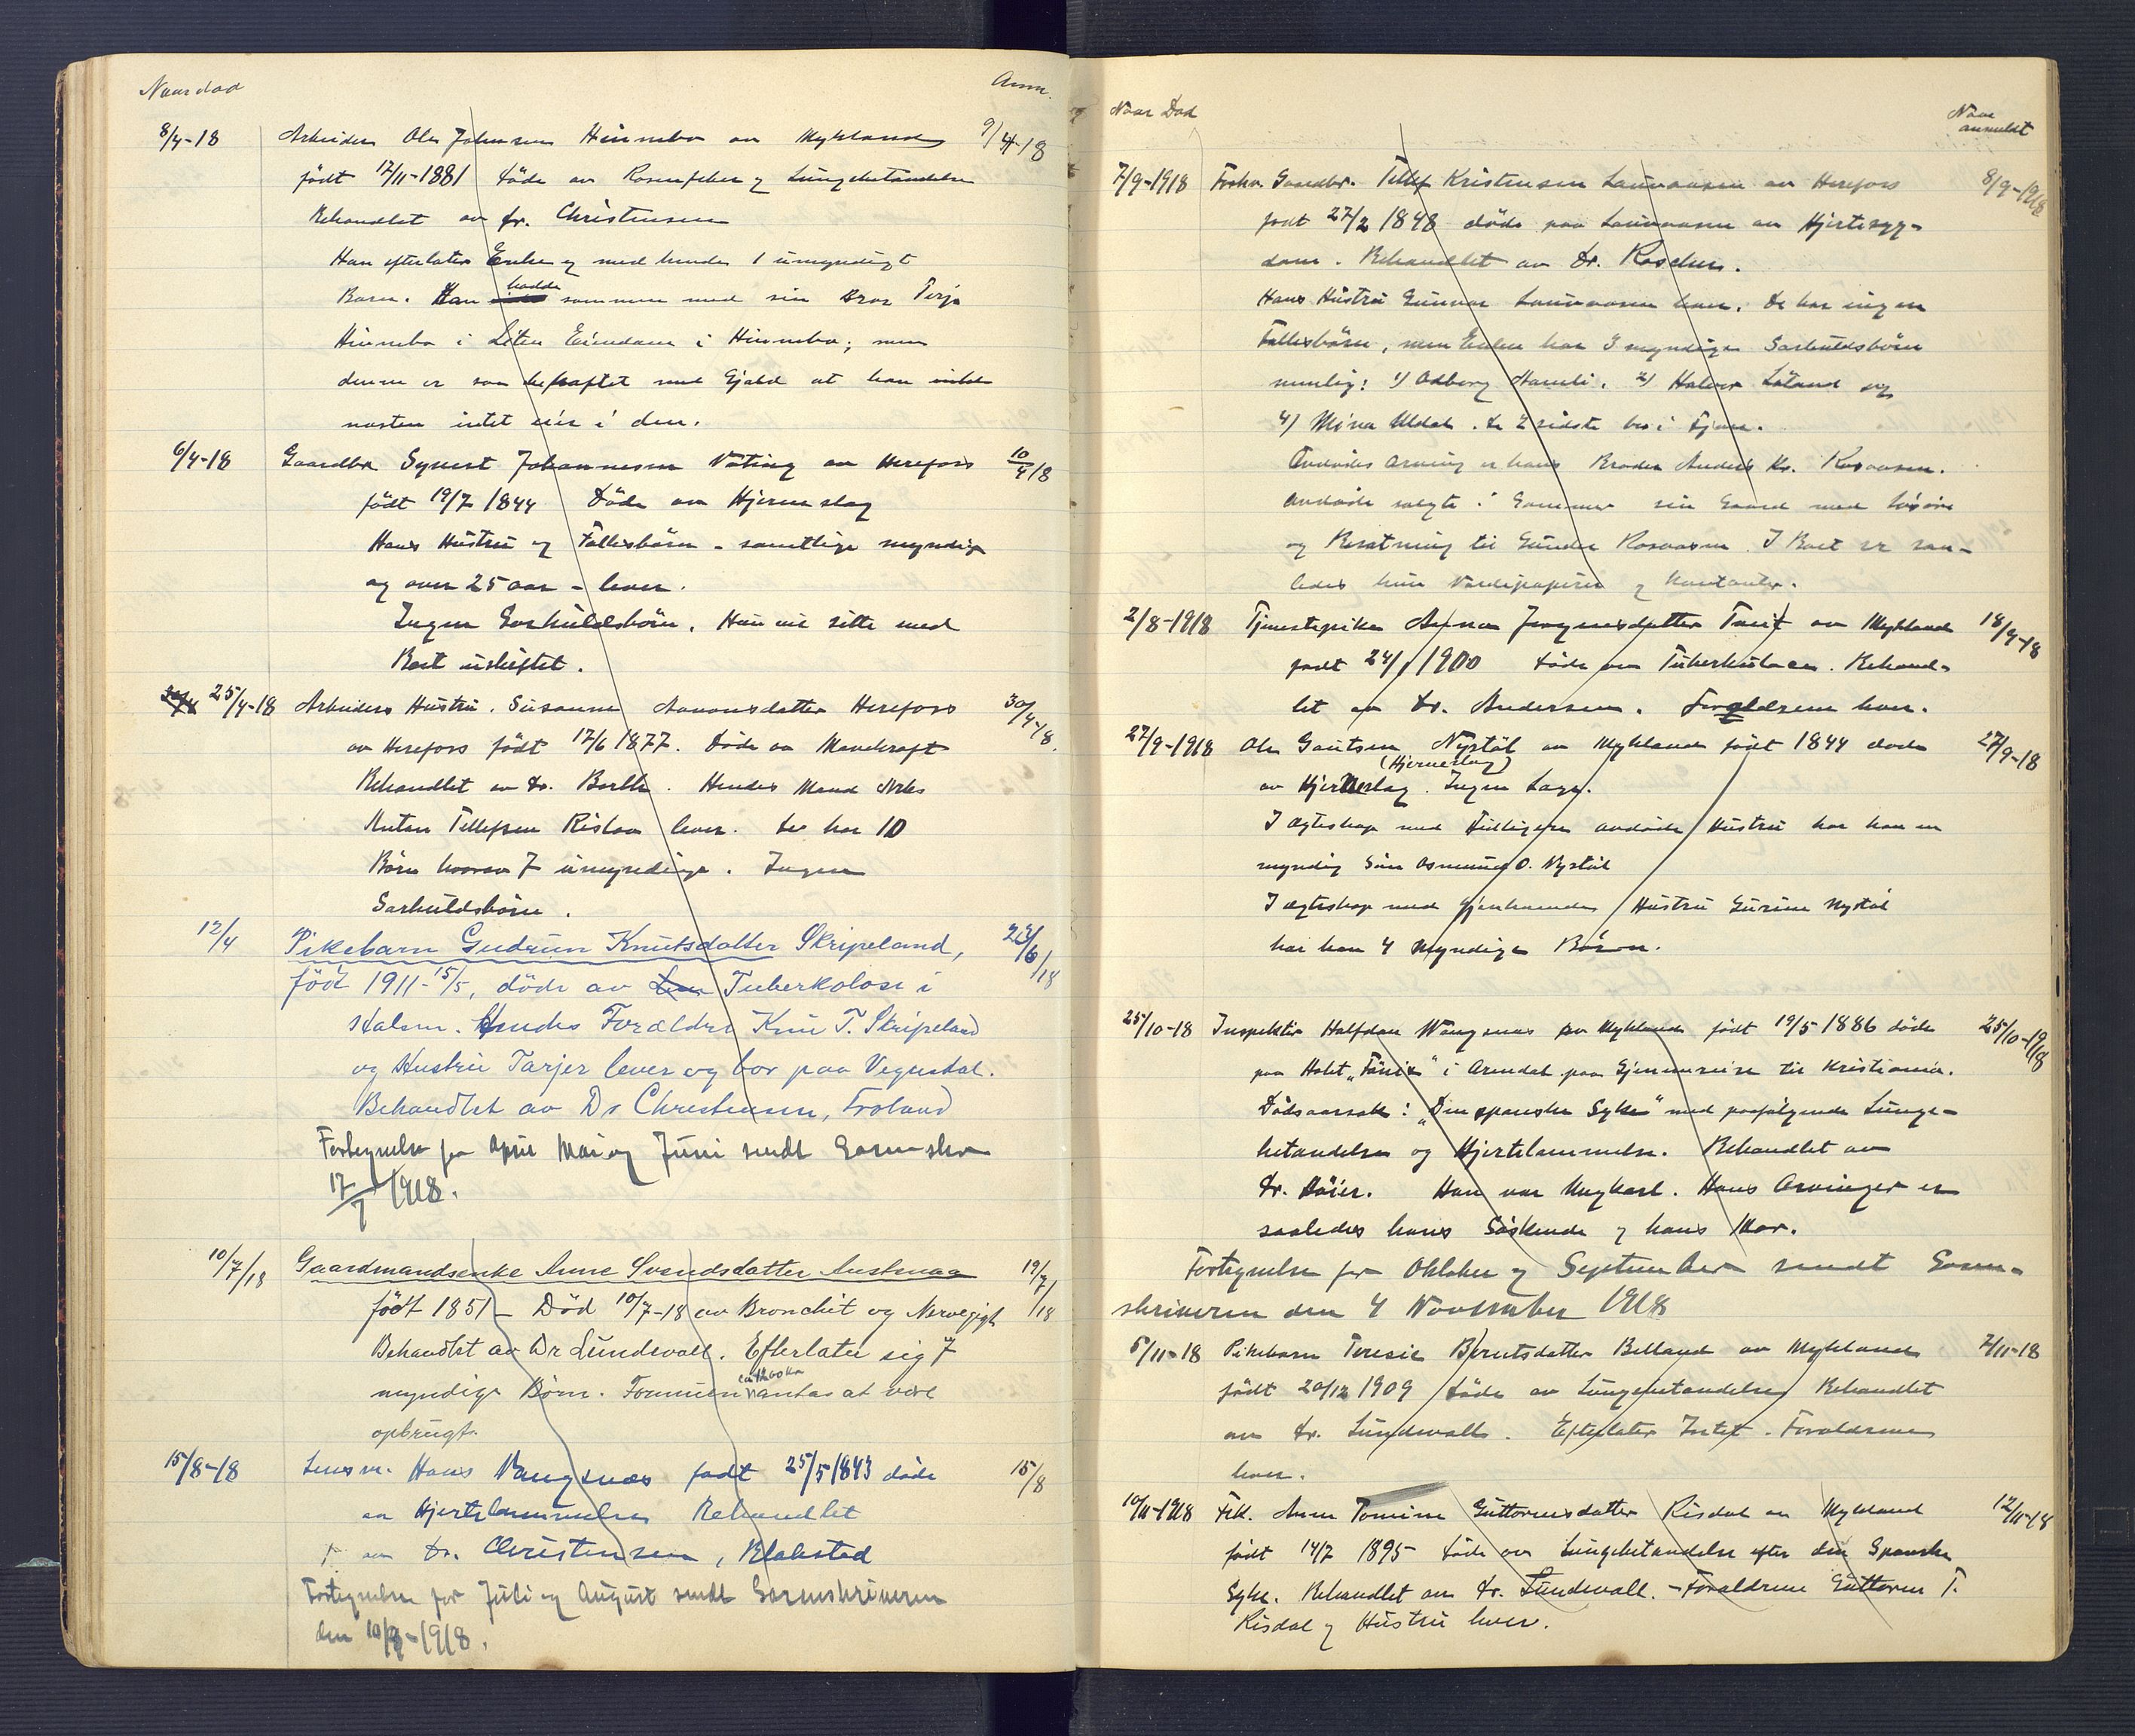 Naar död
Anm.
8/4-18 Arbeider Ole Johnsen Hinnebo av Mykland 9/4-18
födt 12/11-1881 döde av Rosenfeber og Lungebetændelse
Behandlet av Dr. Christensen
Han efterlater Enke og med hende 1 umyndigt
Barn. Han hadde sammen med sin Bror Terje
Hinnebo i Liten Eiendom i Hinnebo; men
denne er saa beheftet med Gjæld at han
næsten intet eier i den.
6/4-18 Gaardbr Syvert Johannesen Væting av Herefoss 10/4 18
födt 19/7 1844 Döde av Hjerneslag
Hans Hustru og Fællesbörn - samtlige myndige
og over 25 aar - lever.
Ingen Særkuldsbörn. Hun vil sitte med
Boet uskiftet.
25/4-18 Arbeiders Hustru. Susanne Aanonsdatter Herefoss 30/4-18.
av Herefoss födt 12/6 1877. Döde av Mavekræft
Behandlet av Dr. Barth. Hendes Mand Nils
Anton Tellefsen Rislaa lever. De har 10
Börn hvorav 7 umyndige. Ingen
Særkuldsbörn.
12/4 Pikebarn Gudrun Knutsdatter Skripeland, 22/6/18
född 1911-15/5, döde av Tuberkolose i
Halsen. Hendes Forældre Knu T. Skripeland
og Hustru Tarjer lever og bor paa Vegusdal.
Behandlet av Dr Christensen, Froland
Fortegnelse for April Mai og Juni sendt Sorenskr
17/7 1918.
10/7/18 Gaardmandsenke Anne Svendsdatter Austenaa 19/7/18
född 1851 - Död 10/7-18 av Bronchit og Nervegigt
Behandlet av Dr Lundevall. Efterlater sig 7
myndige Börn. Formuen antas at være
opbrugt.
15/8-18 Lensm. Hans Vangsnæs född 25/5 1843 döde 15/8
av Hjertelammelse Behandlet
av Dr. Christensen, Blakstad
Fortegnelse for Juli og August sendt Sorenskriveren
den 10/9-1918.
Naar Död
Naar anmeldt
7/9-1918 Forhv. Gaardbr. Tellef Kristensen Lauvaasen av Herefoss 8/9-1918
född 27/2 1848 döde paa Lauvaasen av Hjertesyg-
dom. Behandlet av Dr. Roscher.
Hans Hustru Gunvor Lauvaasen lever. De har ingen
Fællesbörn, men Enken har 3 myndige Særkuldsbörn
nemlig: 1) Odberg Hamli. 2) Halvor Löland og
4) Mina Uldal. De 2 sidste bor i Fjære.
Avdödes Arving er hans Broder Anders Kr. Rosaasen.
Avdöde solgte i Sommer sin Gaard med Lösöre
og Besætning til Gunder Rosaasen. I Boet er saa-
ledes kun Værdipapirer og Kontanter.
2/8-1918 Tjenestepike Anna Jørgensdatter Tveit av Mykland 18/9-18
född 24/1 1900 döde av Tuberkulosen. Behand-
let av Dr. Andersen. Forældrene lever.
27/9-1918 Ole Gautsen Nystöl av Mykland födt 1844 döde 27/9-18
(Hjerneslag)
av Hjerneslag. Ingen Læge.
I Ægteskap med tidligere avdöde Hustru har han en
myndig Sön Osmund O. Nystöl
I Ægteskap med gjenlevende Hustru Gurine Nystöl
har han 4 myndige Börn.
25/10-18 Inspektör Halfdan Wangsnæs av Mykland födt 19/5 1886 döde 25/10-1918
paa Hotel „Fönix" i Arendal paa Gjennemreise til Kristiania.
Dödsaarsak: „Den spanske Syke" med paafölgende Lunge-
betændelse og Hjertelammelse. Behandlet av
Dr. Höier. Han var Ungkarl. Hans Arvinger er
saaledes hans Söskende og hans Mor.
Fortegnelse for Oktober og September sendt Soren-
skriveren den 4 November 1918
5/11-18 Pikebarn Teresie Berntsdatter Belland av Mykland 7/11-18
födt 20/12 1909 döde av Lungebetændelse Behandlet
av Dr. Lundevall. Efterlater Intet. Forældrene
lever.
10/11-1918 Frk. Anne Tomine Guttormsdatter Risdal av Mykland 12/11-18
födt 14/7 1895 döde av Lungebetændelse efter den Spanske
Syke. Behandlet av Dr. Lundevall. - Forældrene Guttorm T.
Risdal og Hustru lever.